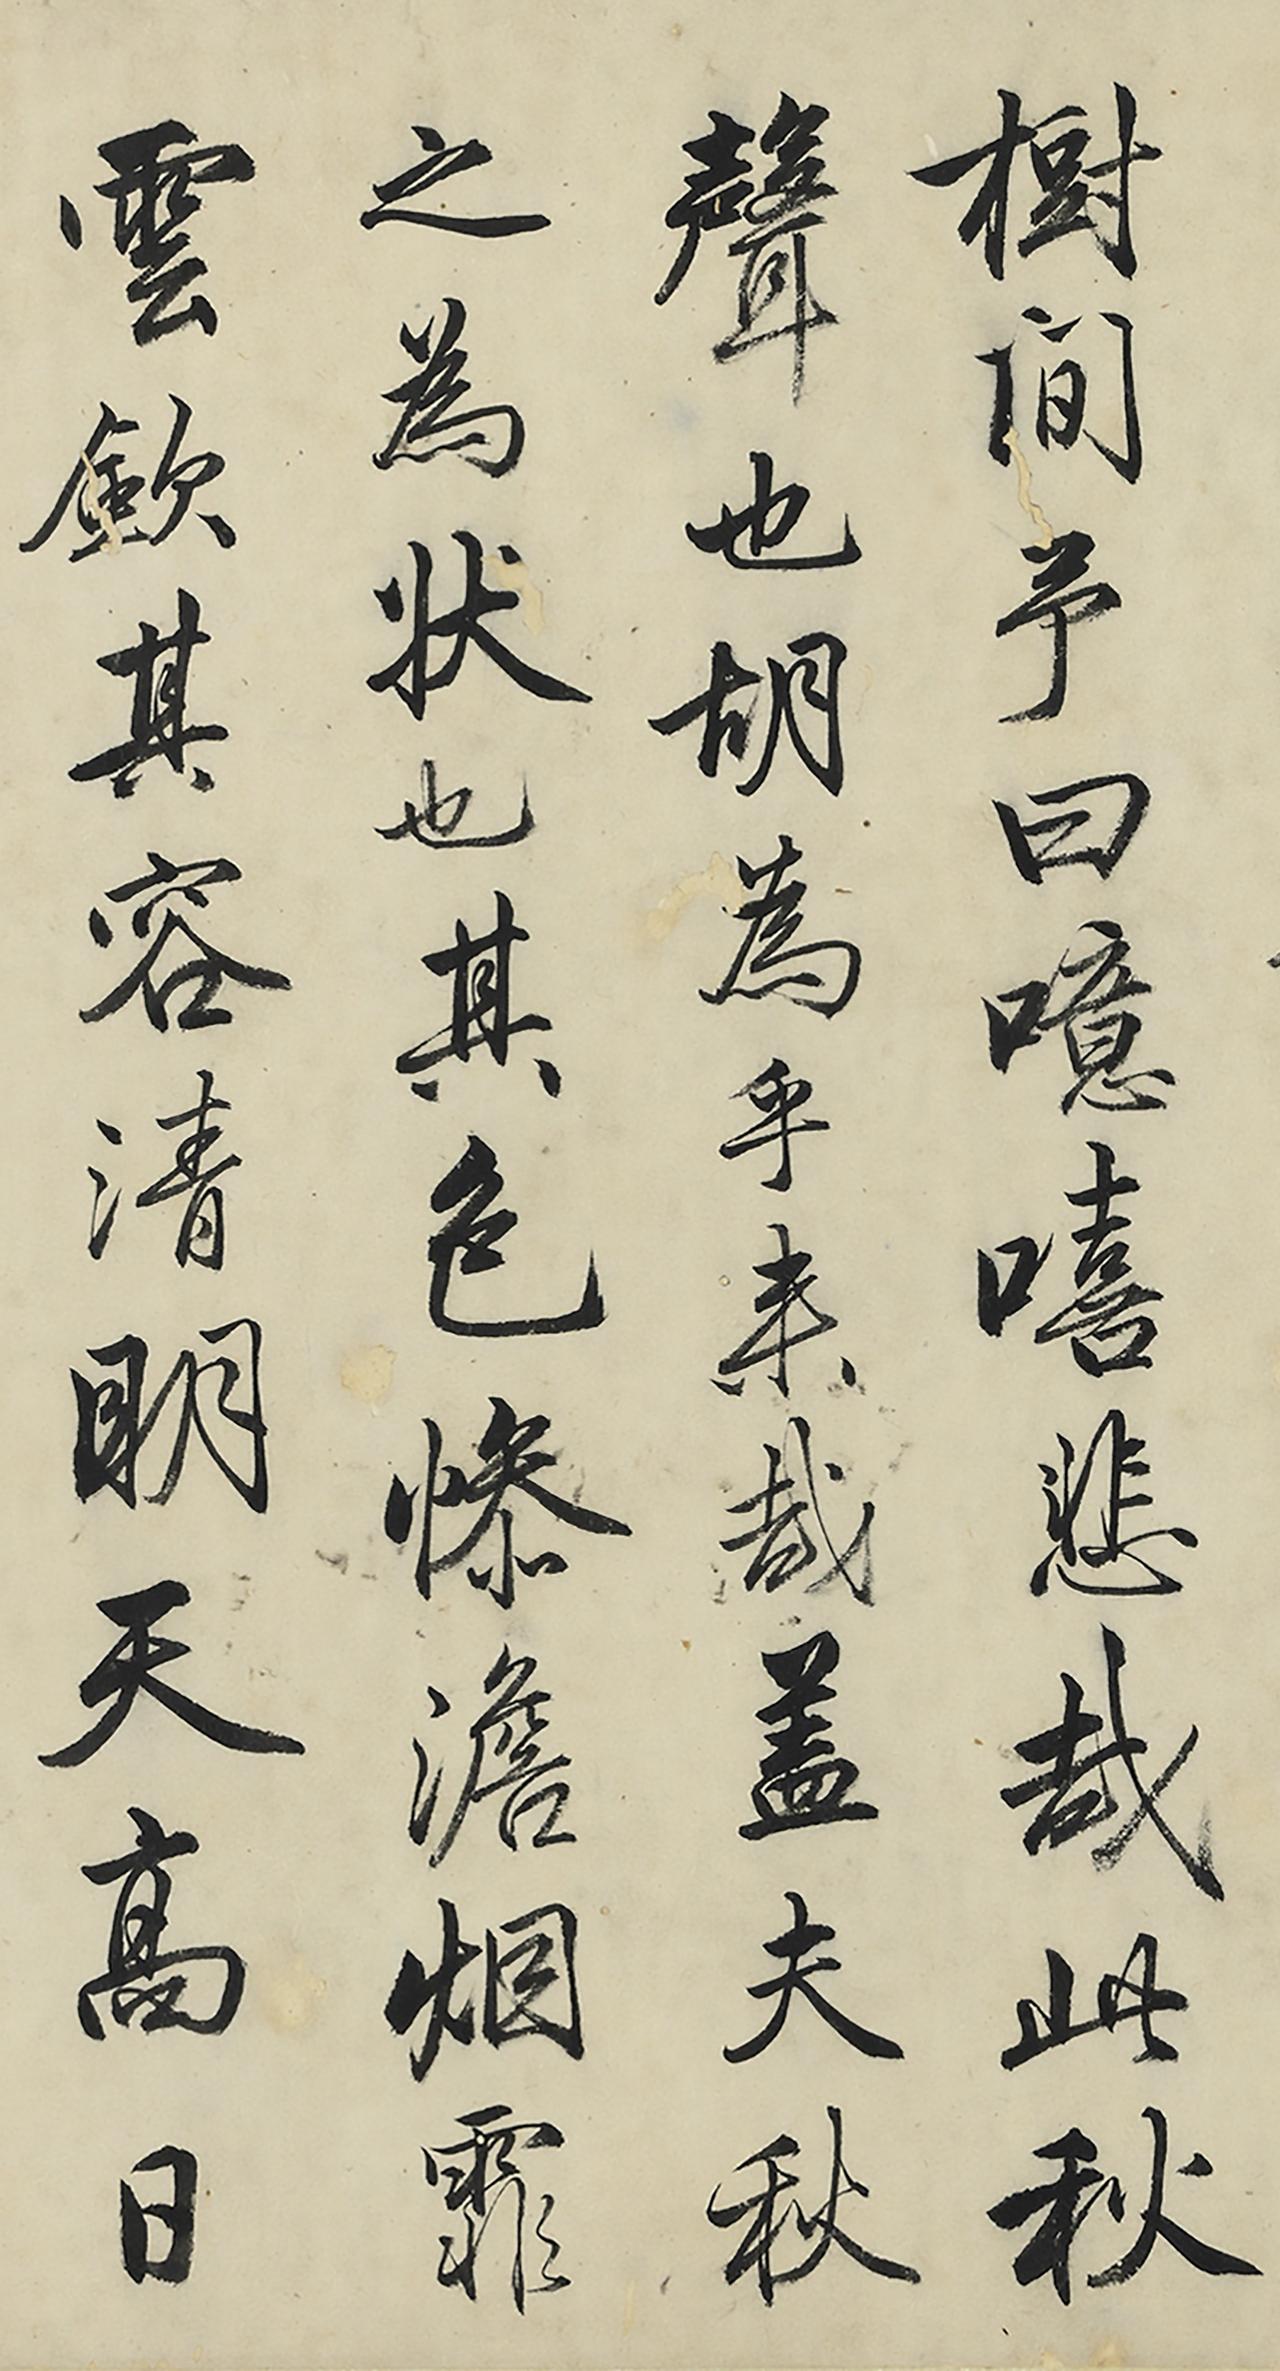 樹間予曰噫嘻悲哉此秋
聲也胡為乎来哉蓋夫秋
之為狀也其色慘澹烟霏
雲歛其容清明天高日